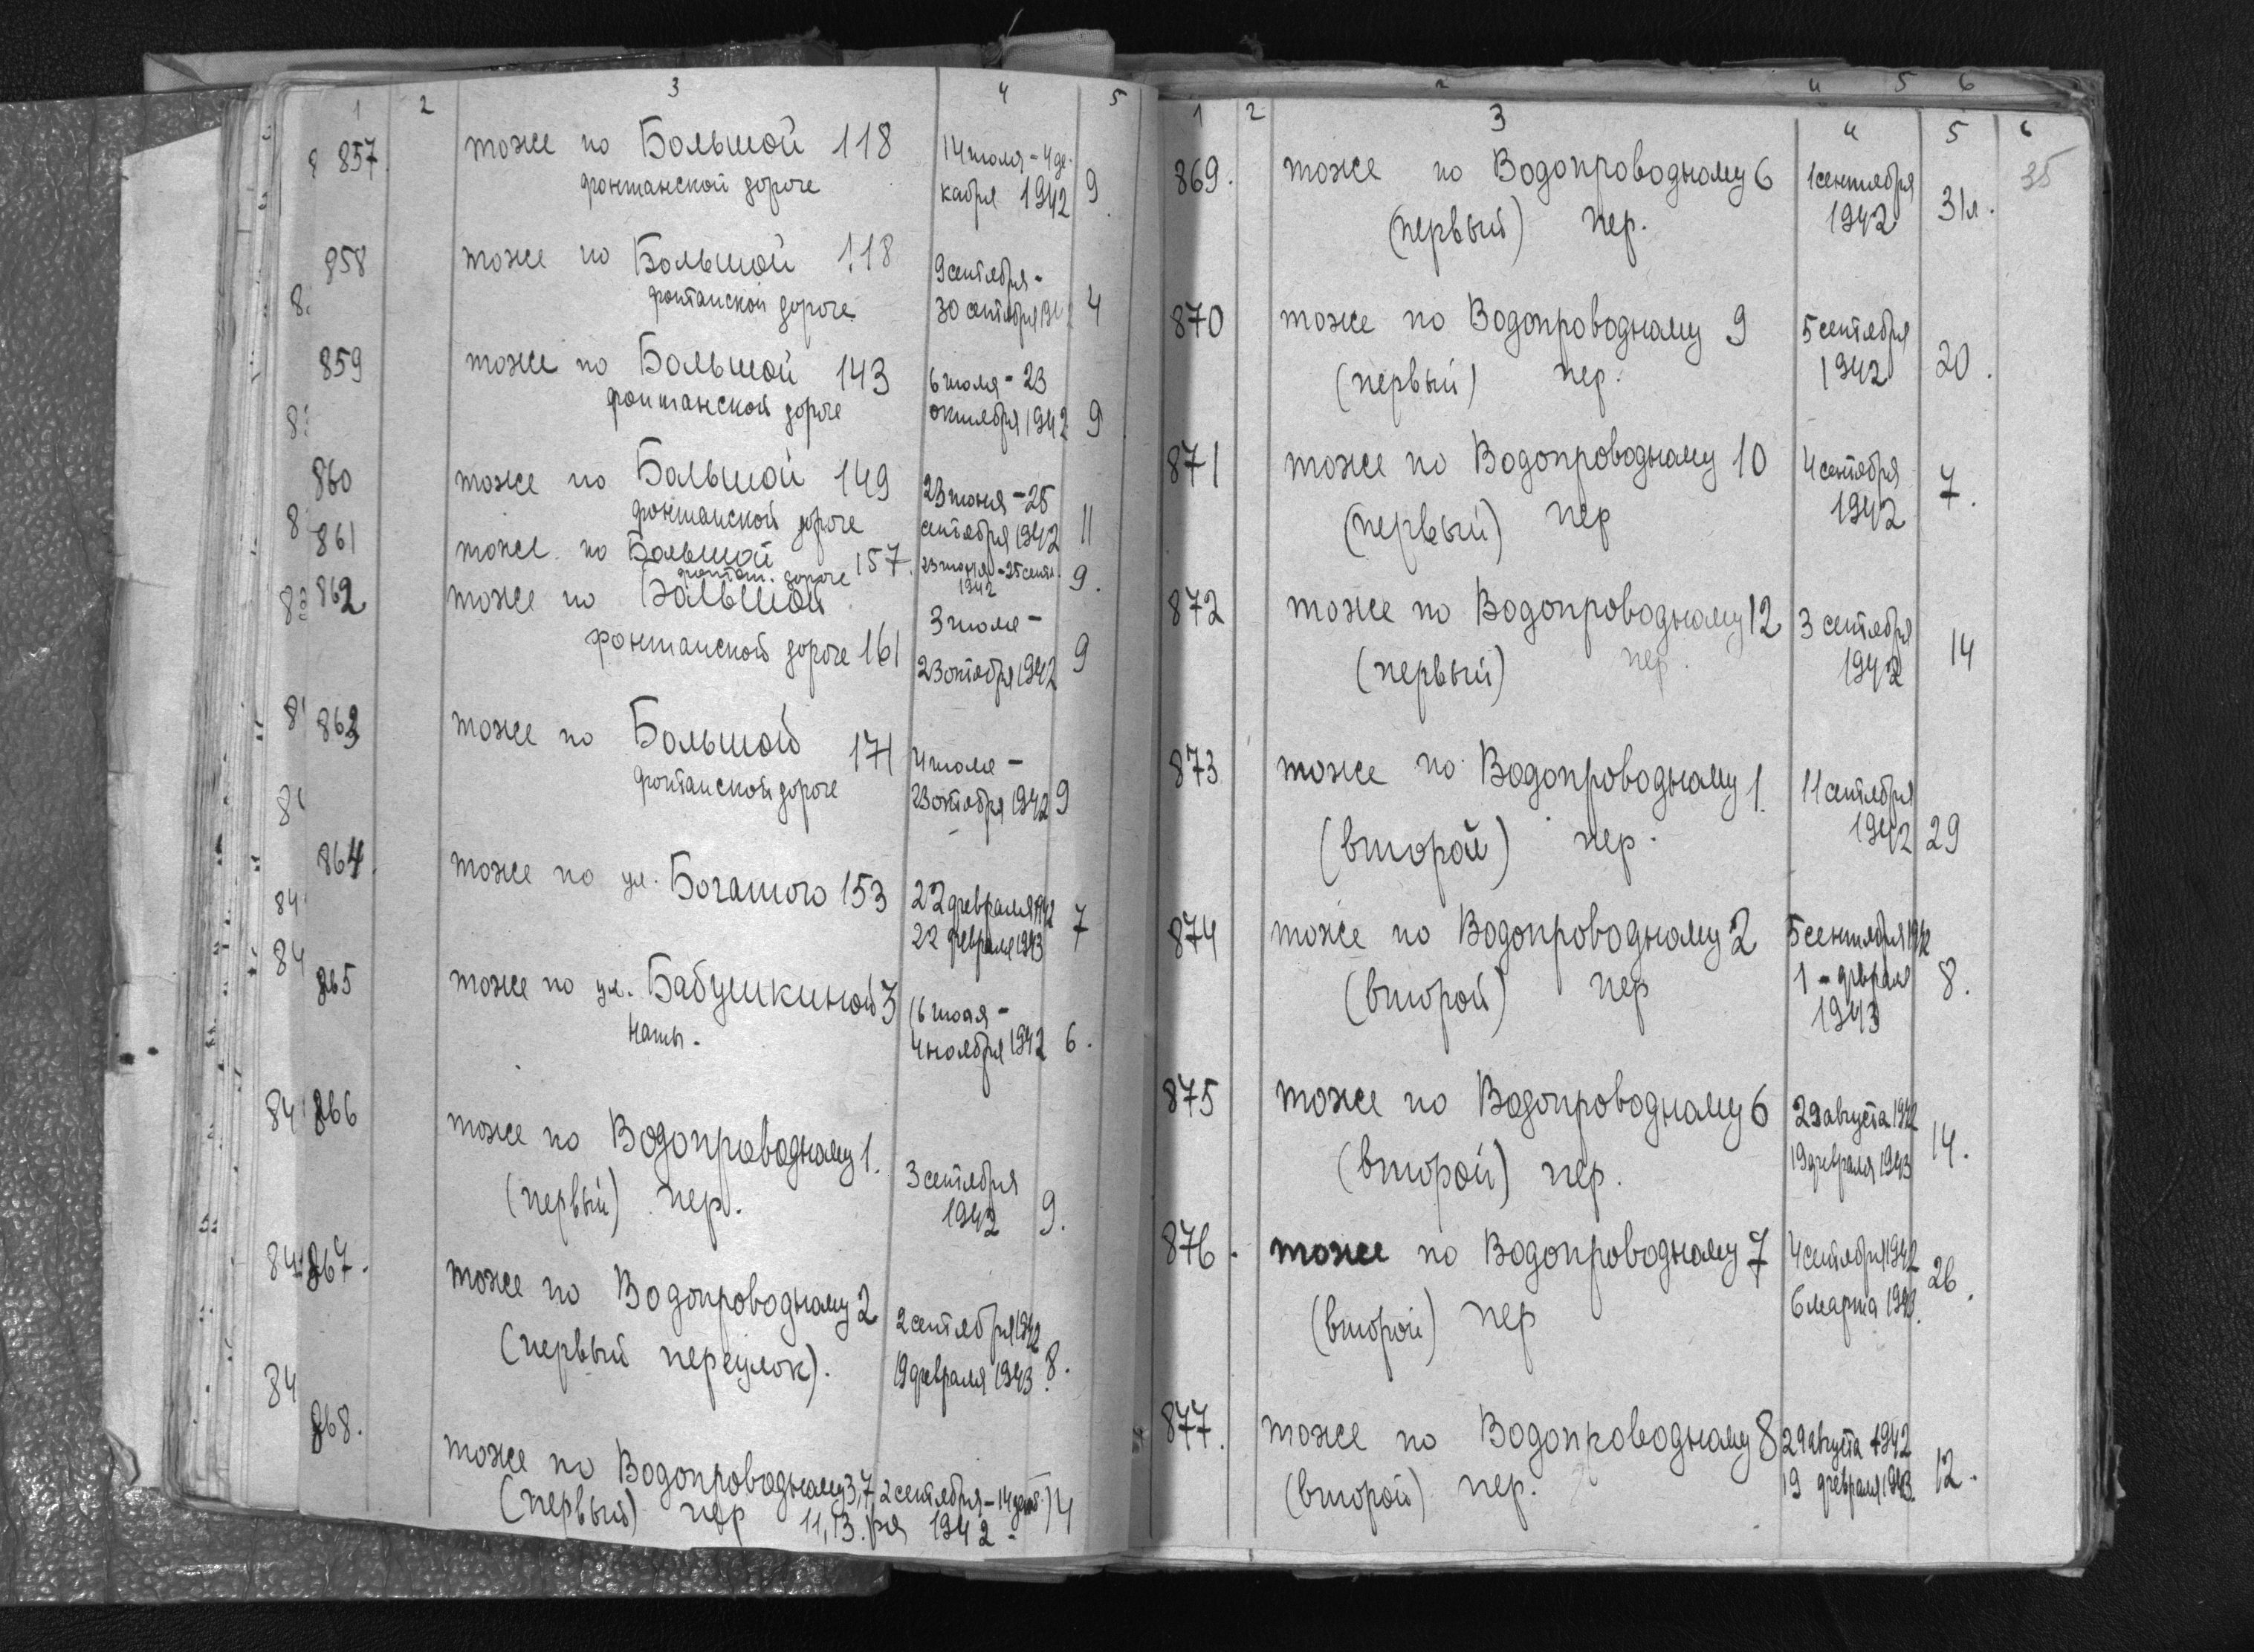 1 2 3 4 5
857 тоже по Большой 118 14 июля - 4 де-
фонтанской дороге кабря 1942 9.
858 тоже по Большой 118 9 сентября -
фонтанской дороге 30 сентября 4
859 тоже по Большой 143 6 июля - 23
фонтанской дороге октября 1942 9
860 тоже по Большой 149 23 июня - 25
фонтанской дороге сентября 1942 11
861 тоже по Большой 157. 23 июня - 25 сент.
фонтан. дороге 1942 9.
862 тоже по Большой 3 июля -
фонтанской дороге 161 23 октября 1942 9
863 тоже по Большой 171 4 июля -
фонтанской дороге 23 октября 1942 9
864. тоже по ул. Богатого 153 22 февраля 1942
22 февраля 1943 7
865 тоже по ул. Бабушкиной 3 16 июля -
4 ноября 1942 6.
866 тоже по Водопроводному 1. 3 сентября
(первый) пер. 1942 9.
867. тоже по Водопроводному 2 2 сентября 1942
(первый переулок). 19 февраля 1943. 8.
868. тоже по Водопроводному 3,7 2 сентября - 14 декаб.
(первый) пер 11, 13. ря 1942 - 14
1 2 3 4 5 6
869. тоже по Водопроводному 6 1 сентября 35
(первый) пер. 1942 31л.
870 тоже по Водопроводному 9 5 сентября
(первый) пер. 1942 20.
871 тоже по Водопроводному 10 4 сентября
(первый) пер 1942 7.
872 тоже по Водопроводному 12 3 сентября
(первый) пер. 1942 14
873 тоже по Водопроводному 1. 11 сентября
(второй) пер. 1942 29
874 тоже по Водопроводному 2 5 сентября 1942
(второй) пер 1 - февраля 8.
1943
875 тоже по Водопроводному 6 29 августа 1942
(второй) пер. 19 февраля 1943 14.
876. тоже по Водопроводному 7 4 сентября 1942
(второй) пер 6 марта 1943. 26.
877. тоже по Водопроводному 8 29 августа 1942
(второй) пер. 19 февраля 1943. 12.